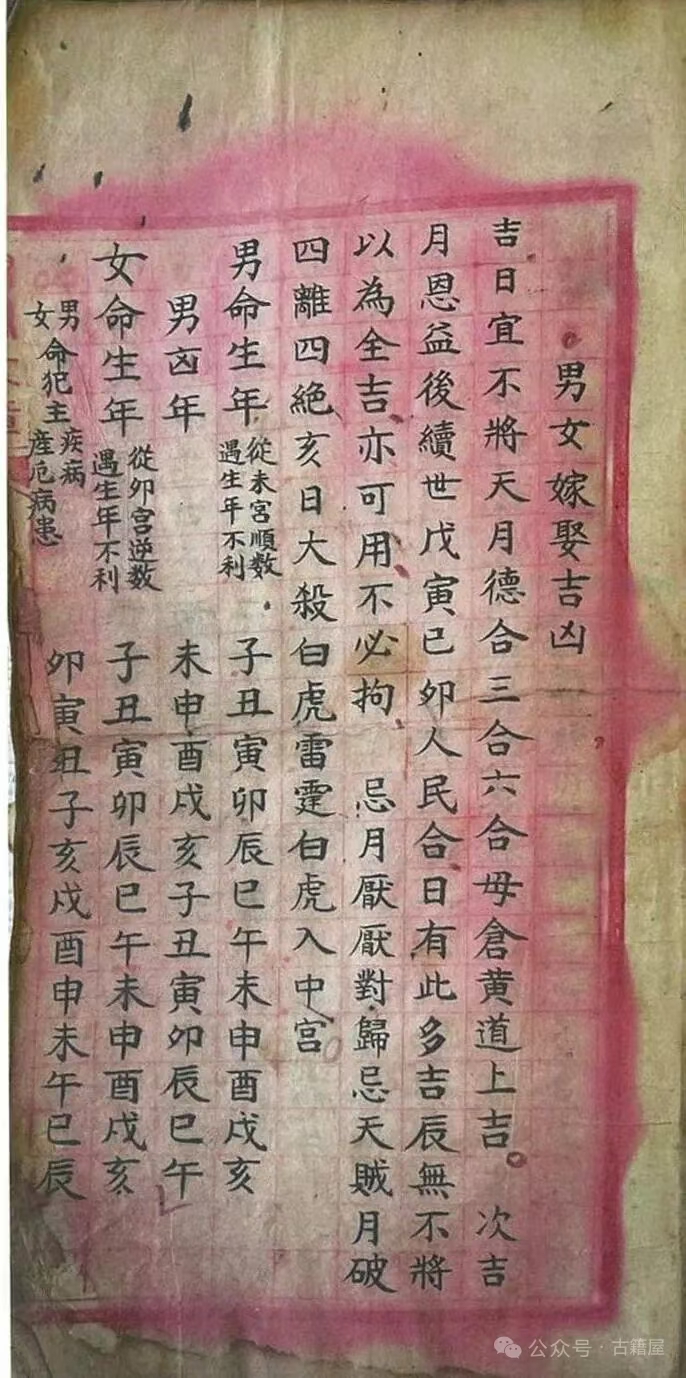 男女嫁娶吉凶
吉日宜不將天月德合三合六合母倉黄道上吉。 次吉
月恩益後續世戊寅己卯人民合日有此多吉辰無不將
以為全吉亦可用不必拘 忌月厭厭對歸忌天賊月破
四離四絕亥日大殺白虎雷霆白虎入中宮
男命生年 從未宮順數 遇生年不利 子丑寅卯辰巳午未申酉戌亥
男凶年 未申酉戌亥子丑寅卯辰巳午
女命生年 從卯宮逆数 遇生年不利 子丑寅卯辰巳午未申酉戌亥
男女命犯主疾病產厄病患 卯寅丑子亥戌酉申未午巳辰
公众号·古籍屋